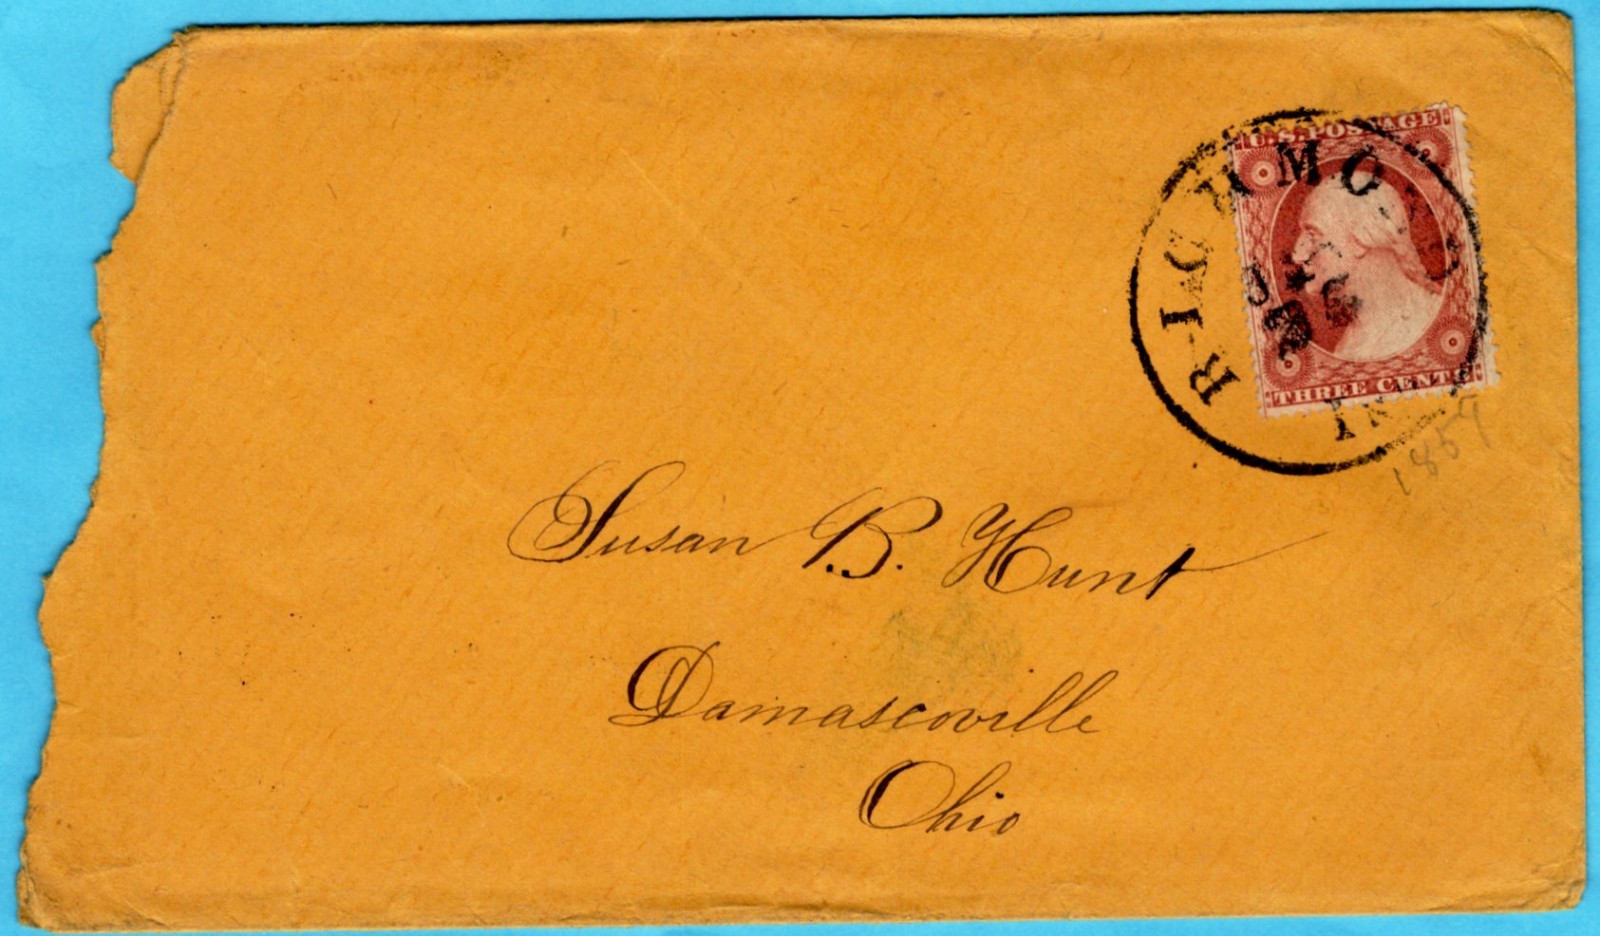 U.S. POSTAGE
THREE CENTS
RICHMOND
IN
1859
Susan B. Hunt
Damascoville
Ohio